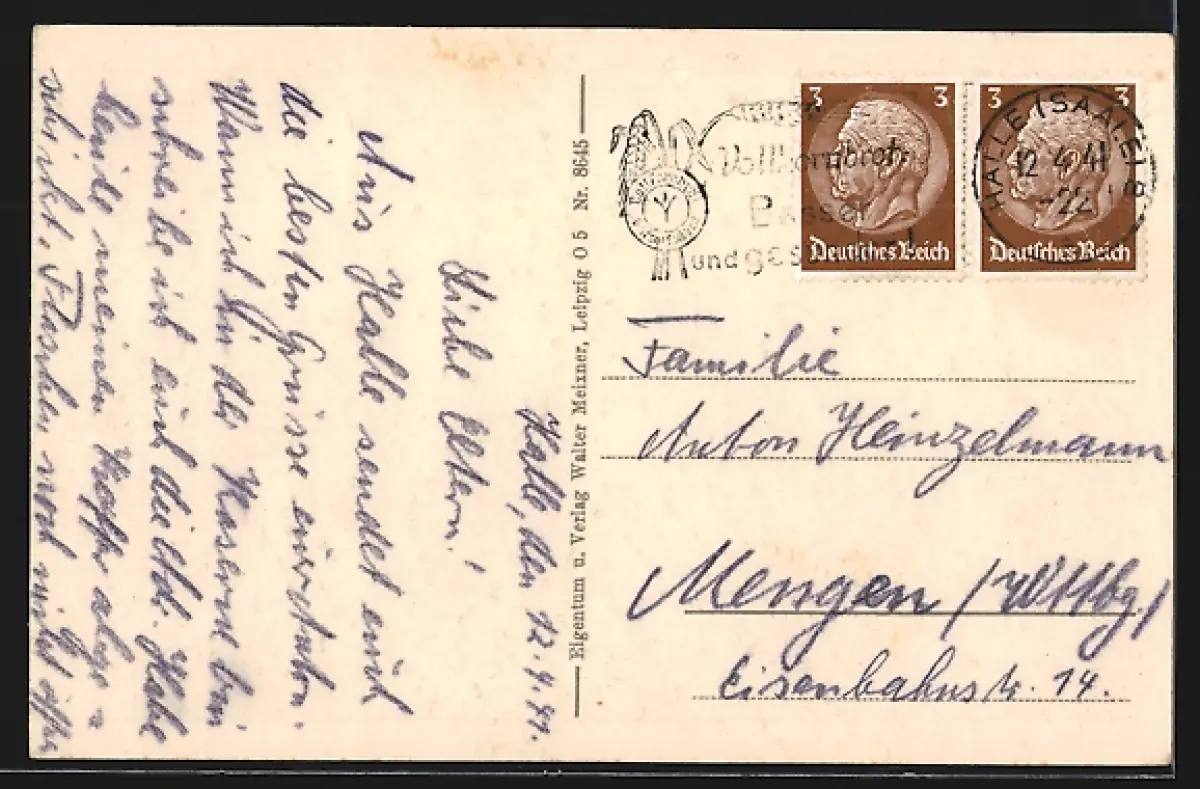 Halle, den 12.4.41.
Liebe Eltern!
Aus Halle sendet euch
die besten Grüsse euer Anton.
Wann ich in der Kaserne bin
schreibe ich euch die Adr. Habe
heute meinen Koffer abge-
schickt, Flaschen noch nicht
Eigentum u. Verlag Walter Meixner, Leipzig O 5 Nr. 8645
Vollkornbrot
Besser
und ges
3 3
Deutsches Reich
3 3
Deutsches Reich
HALLE (SAALE)
12.4.41
-22
Familie
Anton Heinzelmann
Mengen / Wttbg /
Eisenbahnstr. 14.